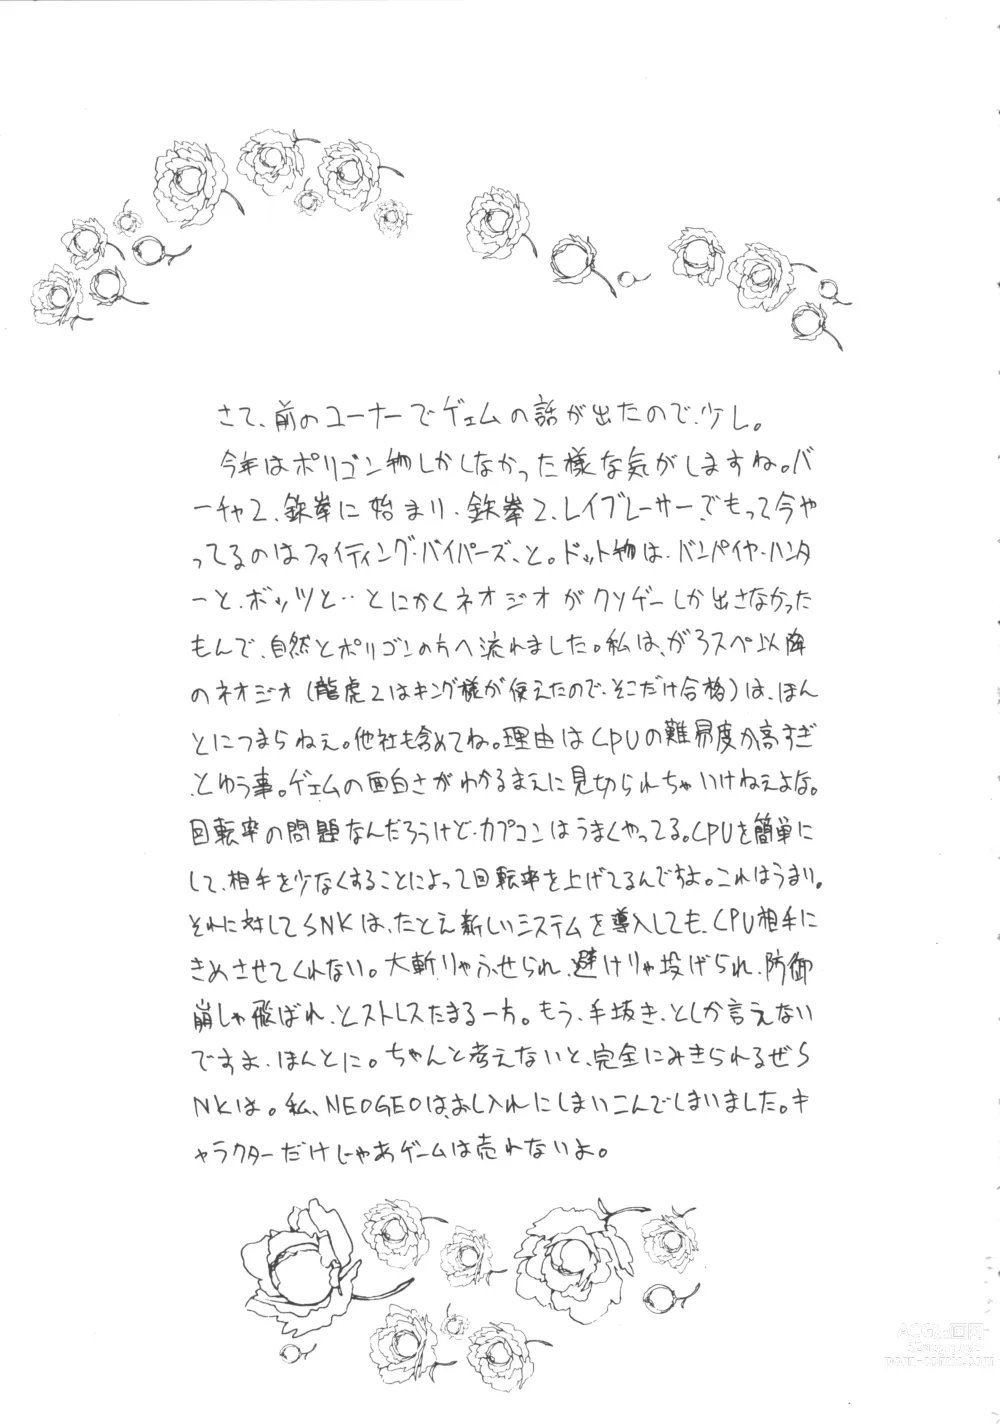 さて、前のコーナーでゲェムの話が出たので、少し。
今年はポリゴン物しかしなかった様な気がしますね。バ
ーチャ2、鉄拳に始まり、鉄拳2、レイブレーサー、でもって今や
ってるのはファイティング・バイパーズ、と。ドット物は、バンパイヤ・ハンタ
ーと、ボッツと‥とにかくネオジオがクソゲーしか出さなかった
もんで、自然とポリゴンの方へ流れました。私は、がろスペ以降
のネオジオ(龍虎2はキング様が使えたので、そこだけ合格)は、ほん
とにつまらねぇ。他社も含めてね。理由はCPUの難易度が高すぎ
とゆう事。ゲェムの面白さがわかるまえに見切られちゃいけねぇよな。
回転率の問題なんだろうけど、カプコンはうまくやってる。CPUを簡単に
して、相手を少なくすることによって回転率を上げてるんですよ。これはうまい。
それに対してSNKは、たとえ新しいシステムを導入しても、CPU相手に
きめさせてくれない。大斬りゃふせられ、避けりゃ投げられ、防御
崩しゃ飛ばれ、とストレスたまる一方。もう、手抜き、としか言えない
ですよ、ほんとに。ちゃんと考えないと、完全にみきられるぜS
NKは。私、NEOGEOは、おし入れにしまいこんでしまいました。キ
ャラクターだけじゃあゲームは売れないよ。
porn-comic.com